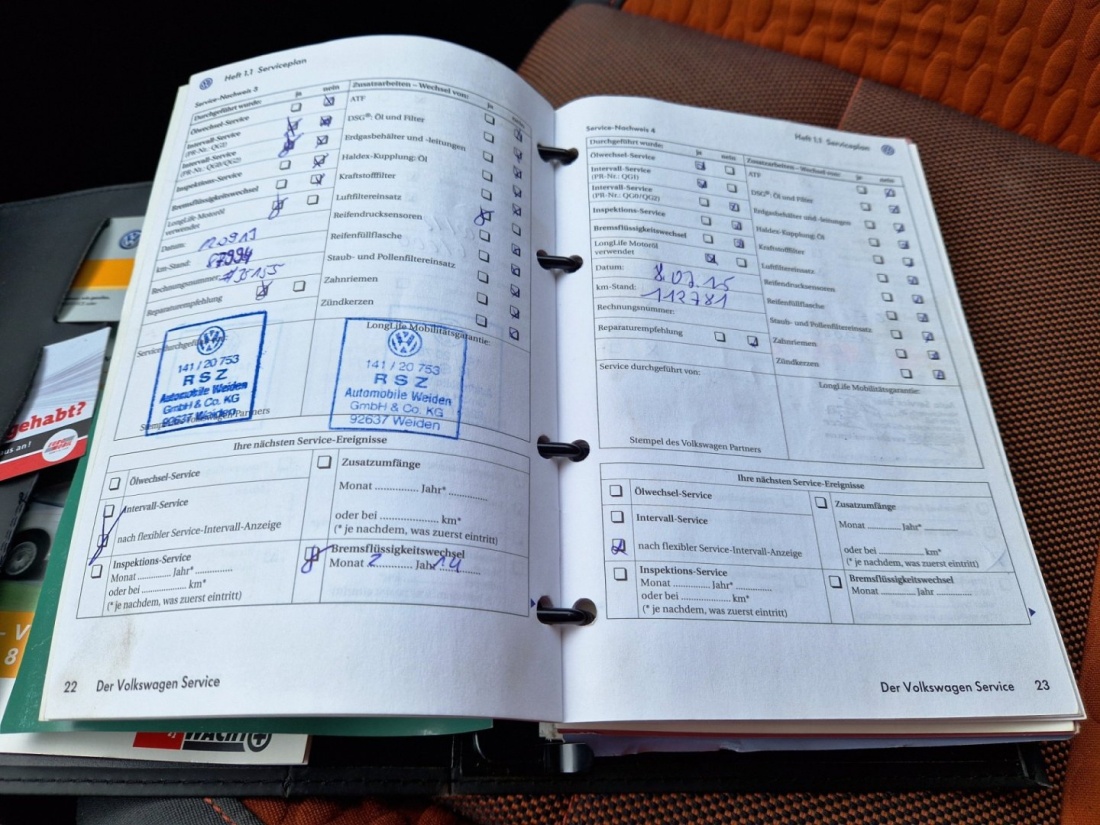 Heft 1.1 Serviceplan
Service-Nachweis 3
Durchgeführt wurde: ja nein
Ölwechsel-Service
Intervall-Service
(PR-Nr.: QG1)
Intervall-Service
(PR-Nr.: QG0/QG2)
Inspektions-Service
Bremsflüssigkeitswechsel
LongLife Motoröl
verwendet
Datum:
km-Stand: 87994
Rechnungsnummer:
Reparaturempfehlung
Zusatzarbeiten – Wechsel von: ja
ATF
DSG®: Öl und Filter
Erdgasbehälter und -leitungen
Haldex-Kupplung: Öl
Kraftstofffilter
Luftfiltereinsatz
Reifendrucksensoren
Reifenfüllflasche
Staub- und Pollenfiltereinsatz
Zahnriemen
Zündkerzen
Service durchgeführt von:
141 / 20 753
RSZ
Automobile Weiden
GmbH & Co. KG
92637 Weiden
Stempel des Volkswagen Partners
LongLife Mobilitätsgarantie:
141 / 20 753
RSZ
Automobile Weiden
GmbH & Co. KG
92637 Weiden
Ihre nächsten Service-Ereignisse
Ölwechsel-Service
Intervall-Service
nach flexibler Service-Intervall-Anzeige
Inspektions-Service
Monat ............ Jahr* ............
oder bei ........................ km*
(* je nachdem, was zuerst eintritt)
Zusatzumfänge
Monat ............ Jahr* ............
oder bei ........................ km*
(* je nachdem, was zuerst eintritt)
Bremsflüssigkeitswechsel
Monat 2 Jahr 14
22 Der Volkswagen Service
Service-Nachweis 4
Heft 1.1 Serviceplan
Durchgeführt wurde: ja nein
Ölwechsel-Service
Intervall-Service
(PR-Nr.: QG1)
Intervall-Service
(PR-Nr.: QG0/QG2)
Inspektions-Service
Bremsflüssigkeitswechsel
LongLife Motoröl
verwendet
Datum: 8.07.15
km-Stand: 112781
Rechnungsnummer:
Reparaturempfehlung
Zusatzarbeiten – Wechsel von: ja nein
ATF
DSG®: Öl und Filter
Erdgasbehälter und -leitungen
Haldex-Kupplung: Öl
Kraftstofffilter
Luftfiltereinsatz
Reifendrucksensoren
Reifenfüllflasche
Staub- und Pollenfiltereinsatz
Zahnriemen
Zündkerzen
Service durchgeführt von:
Stempel des Volkswagen Partners
LongLife Mobilitätsgarantie:
Ihre nächsten Service-Ereignisse
Ölwechsel-Service
Intervall-Service
nach flexibler Service-Intervall-Anzeige
Inspektions-Service
Monat ............ Jahr* ............
oder bei ........................ km*
(* je nachdem, was zuerst eintritt)
Zusatzumfänge
Monat ............ Jahr* ............
oder bei ........................ km*
(* je nachdem, was zuerst eintritt)
Bremsflüssigkeitswechsel
Monat ............ Jahr ............
Der Volkswagen Service 23
gehabt?